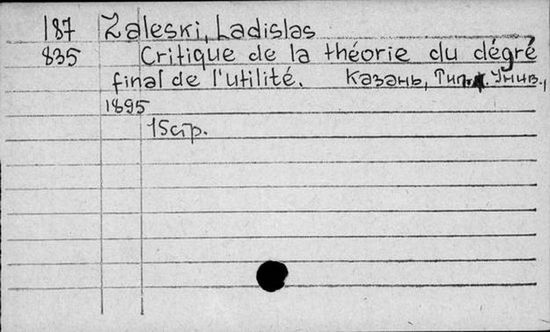 187 Zaleski, Ladislas
835 Critique de la théorie du dégré
final de l'utilité. Казань, Тип. Унив.,
1895
15стр.